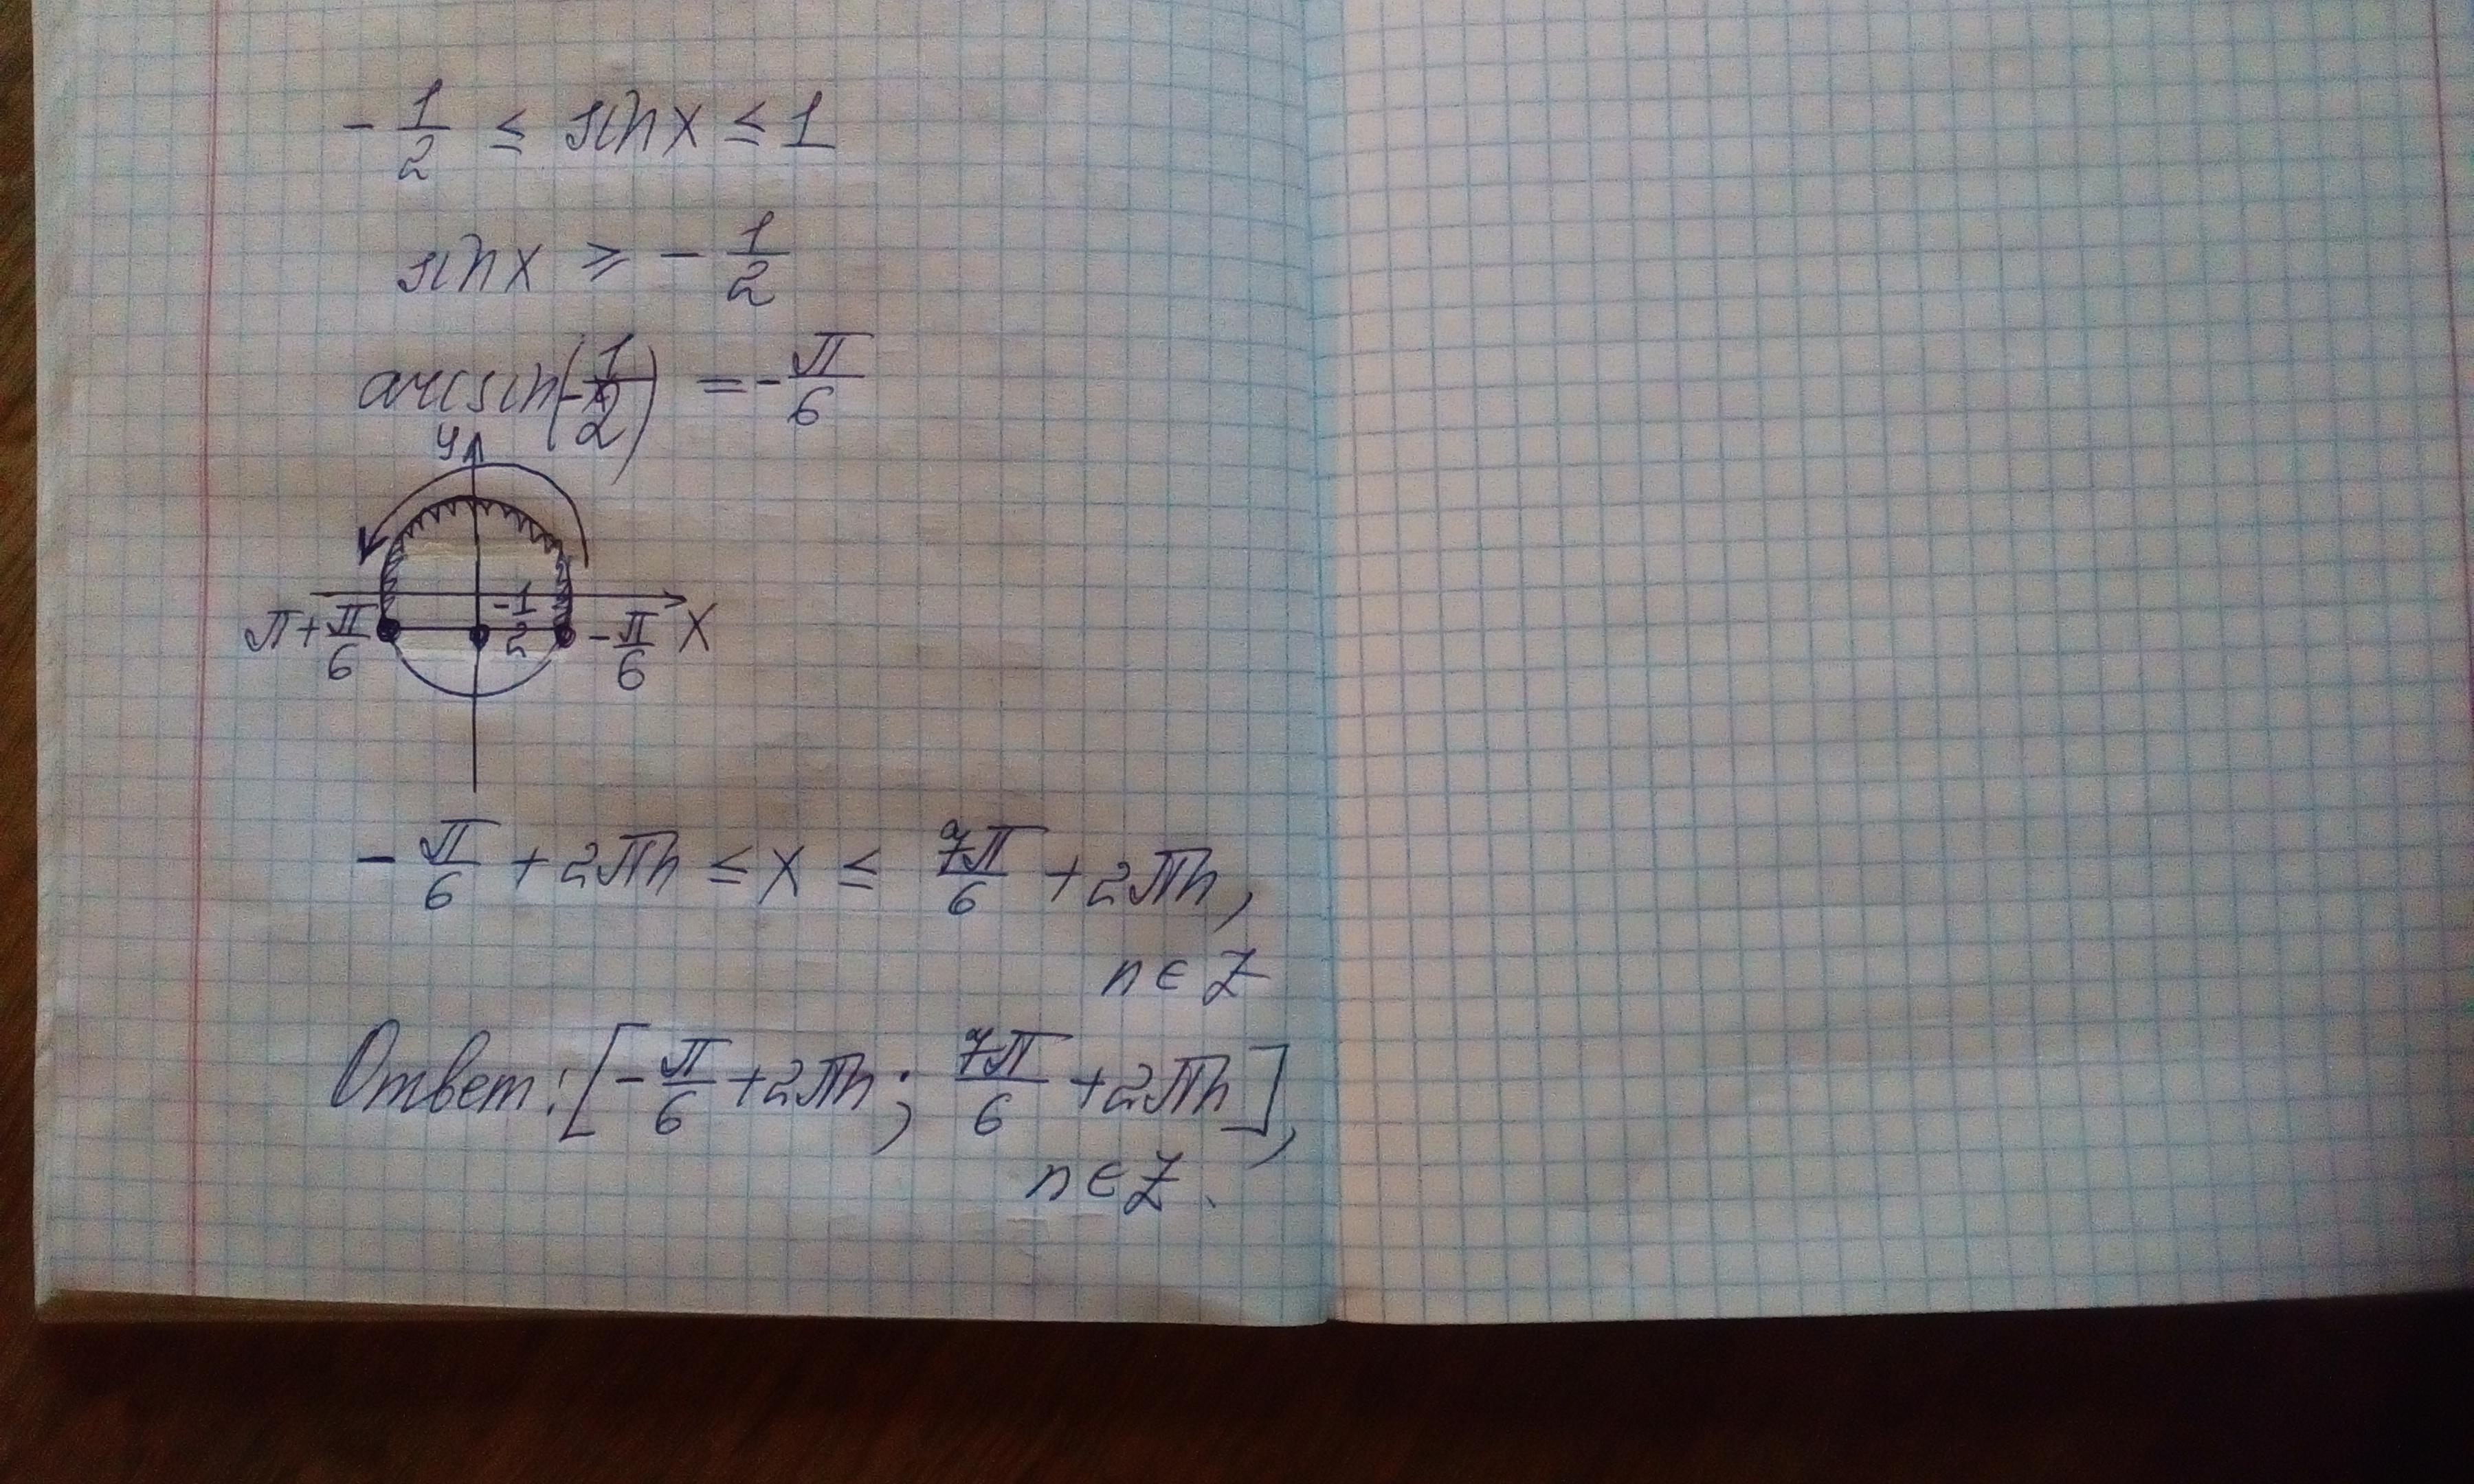 -1/2 ≤ sin x ≤ 1
sin x ≥ -1/2
arcsin(-1/2) = -π/6
y
-1/2
π+π/6
-π/6
X
-π/6 + 2πn ≤ x ≤ 7π/6 + 2πn,
n ∈ Z
Ответ: [-π/6 + 2πn; 7π/6 + 2πn],
n ∈ Z.